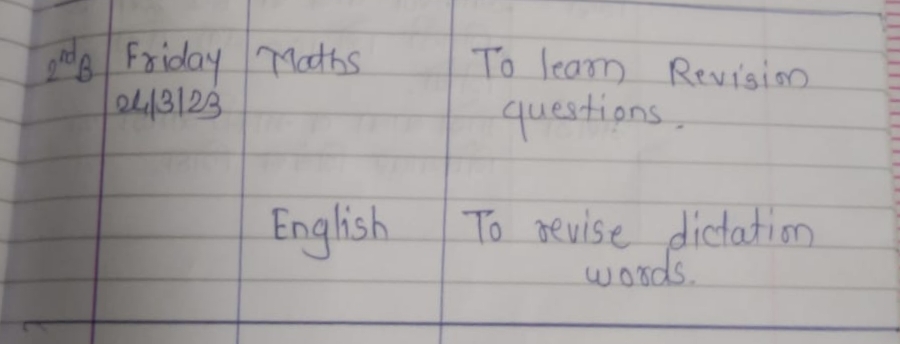 2nd B Friday Maths To learn Revision
24/3/23 questions.
English To revise dictation
words.